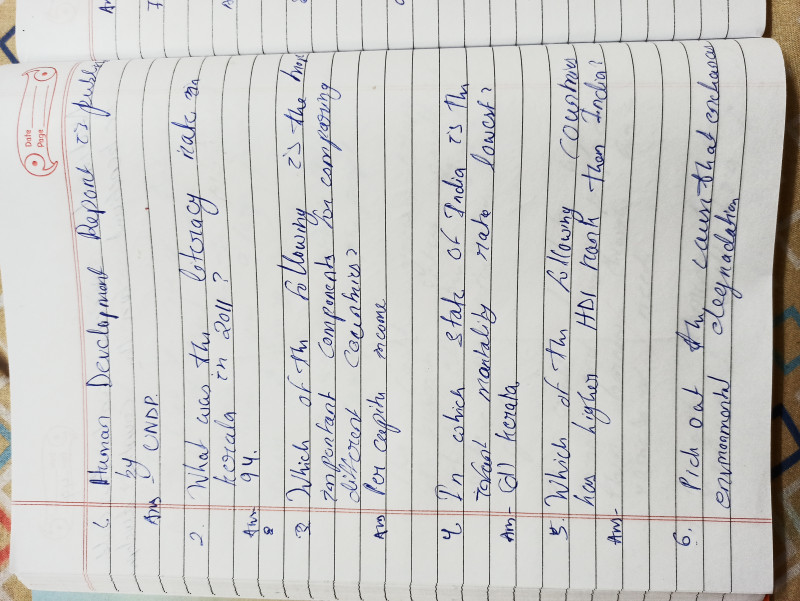 Date
Page
1. Human Development Report is publis
by
Ans UNDP.
2. What was the literacy rate in
kerala in 2011 ?
Ans 94.
3. Which of the following is the
important components for comparing
different countries?
Ans Per capita income
4. In which state of India is the
infant mortality rate lowest?
Ans- (d) kerala
5. Which of the following countries
has higher HDI rank than India?
Ans-
6. Pick out the cause that
environmental degradation